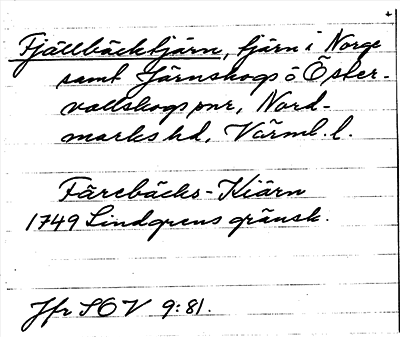 Fjällbäcktjärn, tjärn i Norge
samt Järnskogs o Öster-
vallskogs snr, Nord-
marks hd, Värml. l.
Färebäcks-Kiärn
1749 Lindgrens gränsk.
Jfr SOV 9:81.